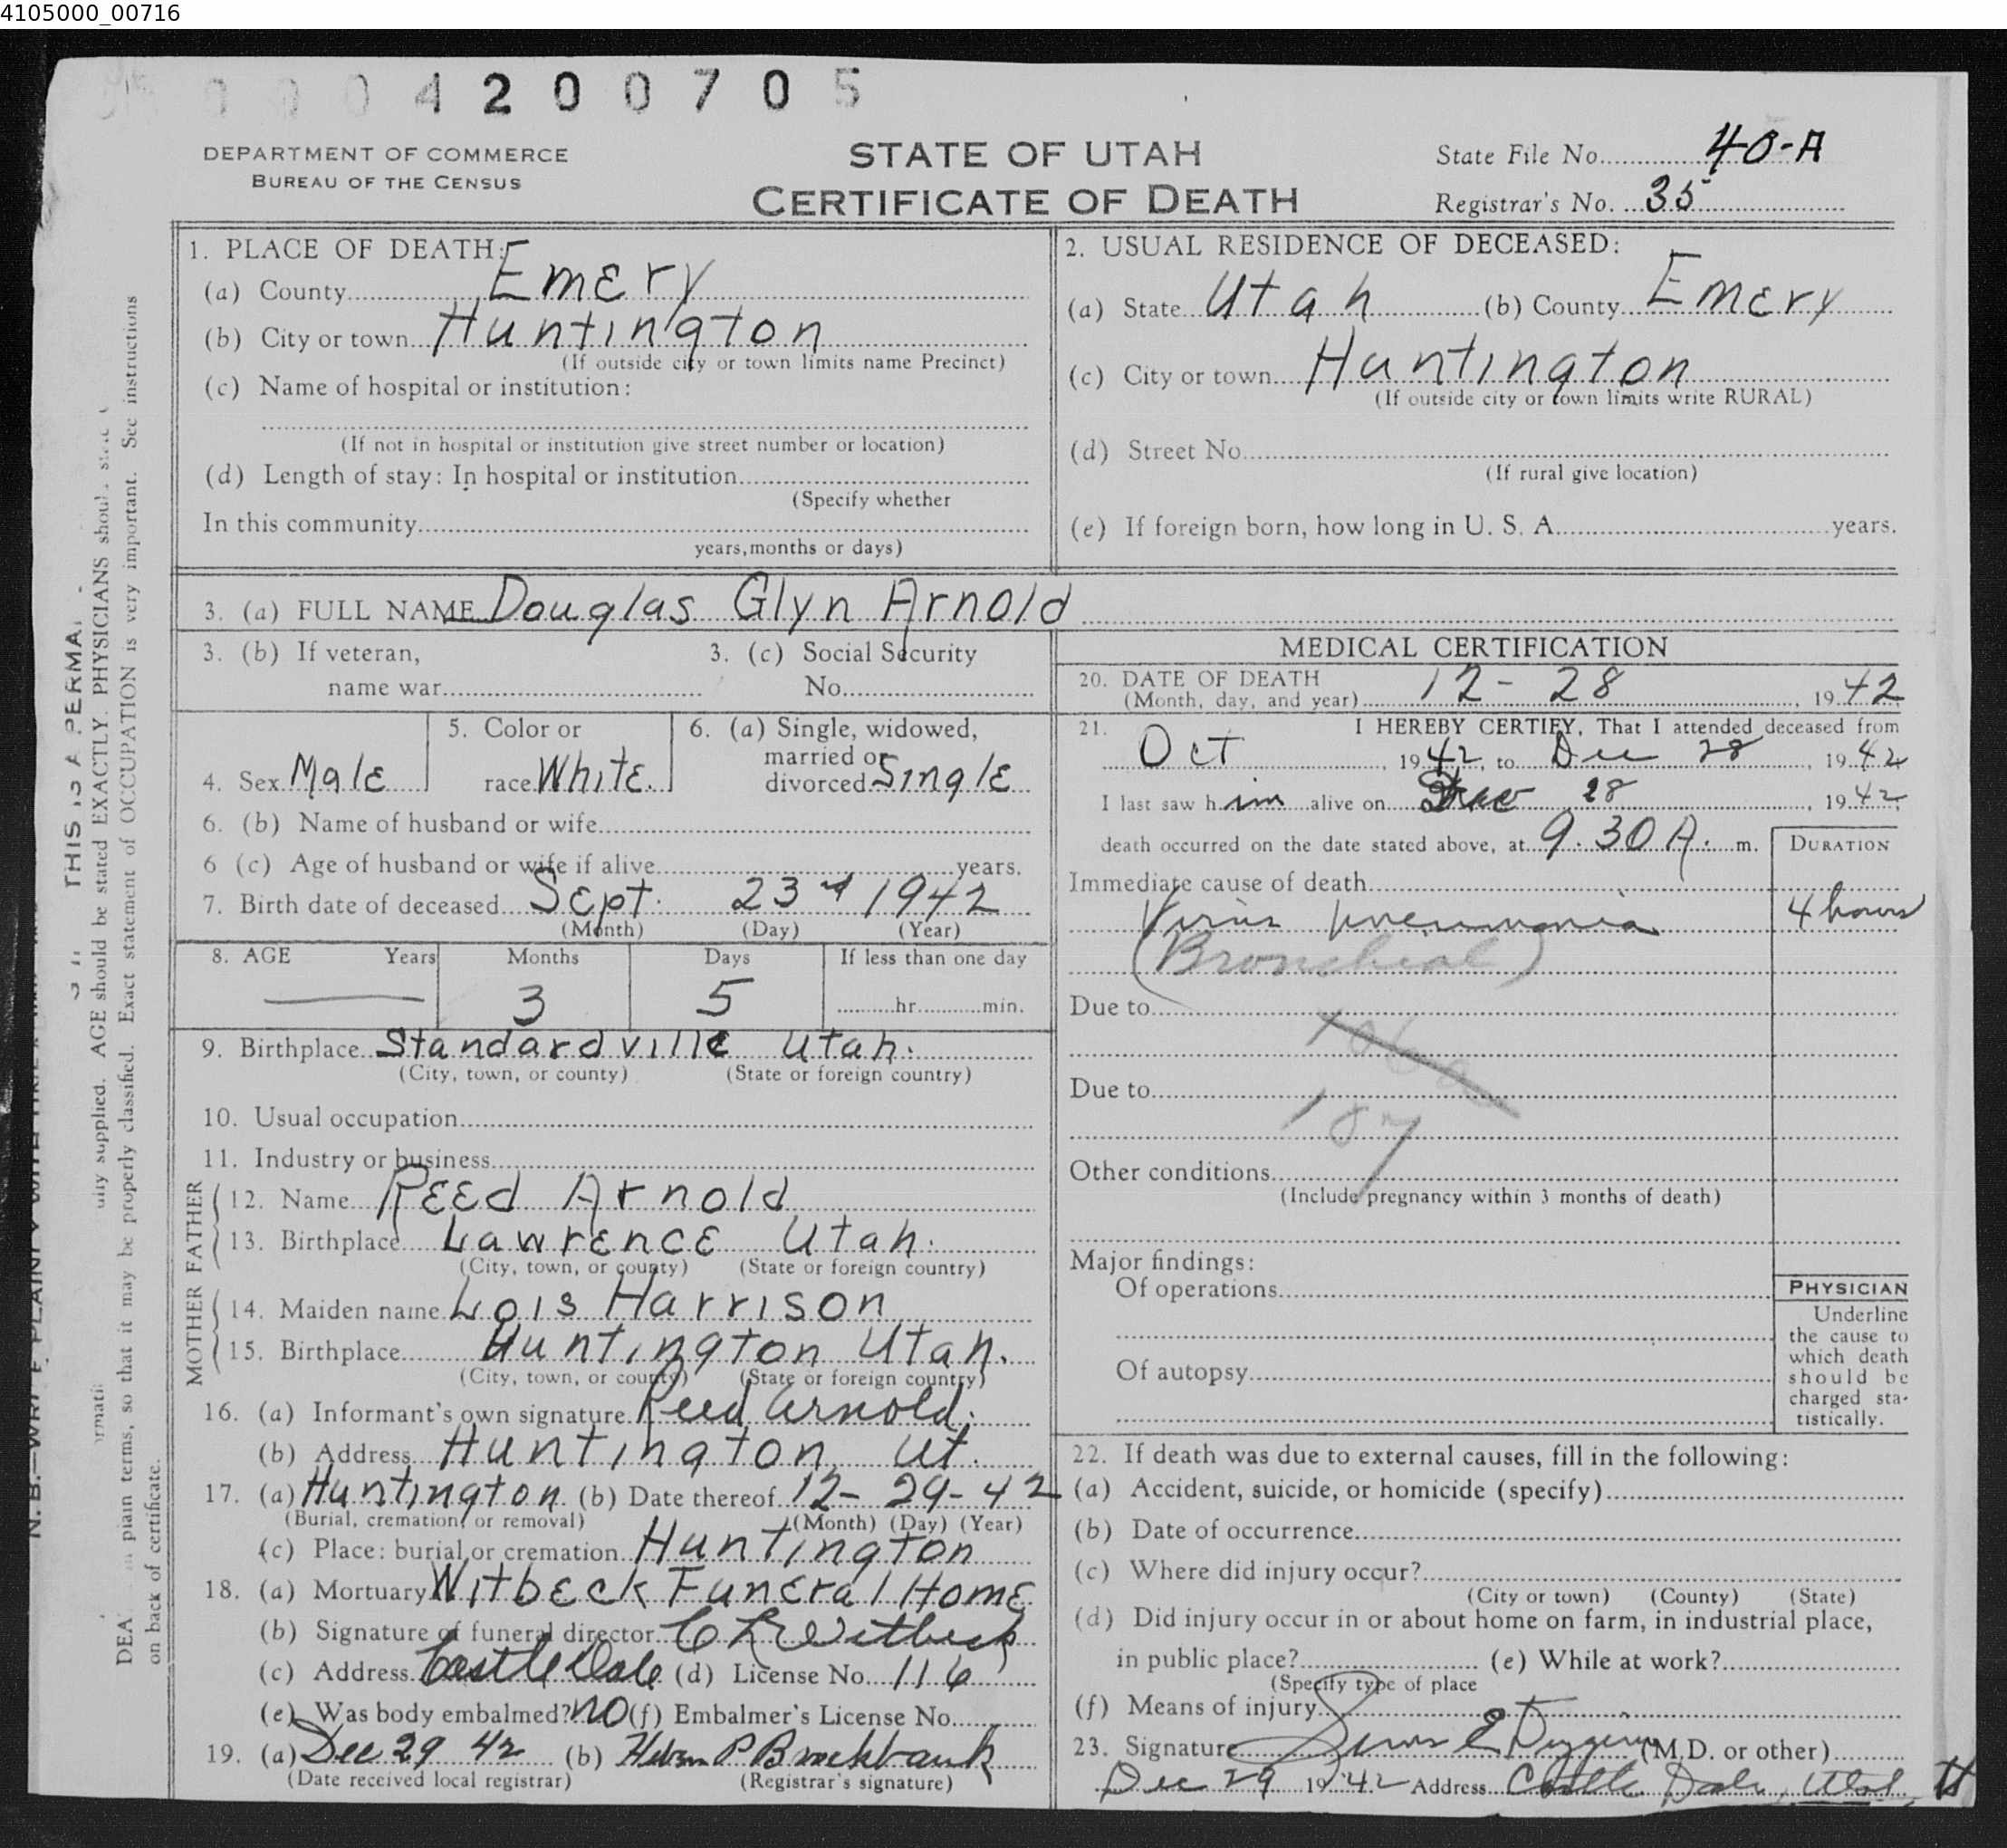 4105000_00716
0004200705
DEPARTMENT OF COMMERCE
BUREAU OF THE CENSUS
STATE OF UTAH
CERTIFICATE OF DEATH
State File No. 40-A
Registrar's No. 35
1. PLACE OF DEATH:
(a) County Emery
(b) City or town Huntington
(If outside city or town limits name Precinct)
(c) Name of hospital or institution:
(If not in hospital or institution give street number or location)
(d) Length of stay: In hospital or institution
(Specify whether
In this community
years, months or days)
2. USUAL RESIDENCE OF DECEASED:
(a) State Utah (b) County Emery
(c) City or town Huntington
(If outside city or town limits write RURAL)
(d) Street No.
(If rural give location)
(e) If foreign born, how long in U. S. A. years.
3. (a) FULL NAME Douglas Glyn Arnold
3. (b) If veteran, 3. (c) Social Security
name war No.
4. Sex Male
5. Color or
race White.
6. (a) Single, widowed,
married or
divorced Single
6. (b) Name of husband or wife
6 (c) Age of husband or wife if alive years.
7. Birth date of deceased Sept. 23rd 1942
(Month) (Day) (Year)
8. AGE Years Months Days If less than one day
3 5 hr. min.
9. Birthplace Standardville Utah.
(City, town, or county) (State or foreign country)
10. Usual occupation
11. Industry or business
FATHER
12. Name Reed Arnold
13. Birthplace Lawrence Utah.
(City, town, or county) (State or foreign country)
MOTHER
14. Maiden name Lois Harrison
15. Birthplace Huntington Utah.
(City, town, or county) (State or foreign country)
16. (a) Informant's own signature Reed Arnold.
(b) Address Huntington Ut.
17. (a) Huntington (b) Date thereof 12-29-42
(Burial, cremation, or removal) (Month) (Day) (Year)
(c) Place: burial or cremation Huntington
18. (a) Mortuary Witbeck Funeral Home
(b) Signature of funeral director C L Witbeck
(c) Address Castle Dale (d) License No. 116
(e) Was body embalmed? NO (f) Embalmer's License No.
19. (a) Dec 29 42 (b) P Brockbank
(Date received local registrar) (Registrar's signature)
MEDICAL CERTIFICATION
20. DATE OF DEATH
(Month, day, and year) 12-28, 1942
21. I HEREBY CERTIFY, That I attended deceased from
Oct, 1942, to Dec 28, 1942
I last saw him alive on Dec 28, 1942
death occurred on the date stated above, at 9.30 A. m.
DURATION
Immediate cause of death
Virus pneumonia 4 hours
(Bronchial)
Due to
106a
Due to
107
Other conditions
(Include pregnancy within 3 months of death)
Major findings:
Of operations
Of autopsy
PHYSICIAN
Underline
the cause to
which death
should be
charged sta-
tistically.
22. If death was due to external causes, fill in the following:
(a) Accident, suicide, or homicide (specify)
(b) Date of occurrence
(c) Where did injury occur?
(City or town) (County) (State)
(d) Did injury occur in or about home on farm, in industrial place,
in public place? (e) While at work?
(Specify type of place
(f) Means of injury
23. Signature (M.D. or other)
Dec 29 1942 Address Castle Dale, Utah
THIS IS A PERMA
uily supplied. AGE should be stated EXACTLY. PHYSICIANS
plain terms, so that it may be properly classified. Exact statement of OCCUPATION is very important. See instructions
on back of certificate.